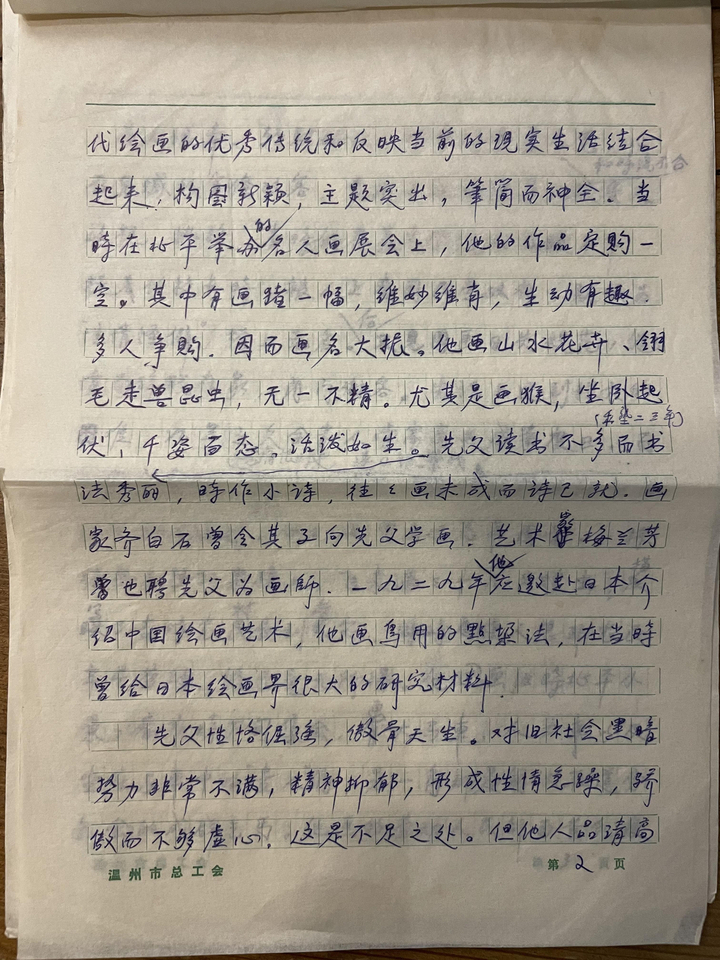 代绘画的优秀传统和反映当前的现实生活结合
起来,构图新颖,主题突出,筆简而神全。当
的
時在北平举办名人画展会上,他的作品定购一
空。其中有画猪一幅,维妙维肖,生动有趣.
多人争購.因而画名大振。他画山水花卉、翎
毛走兽昆虫,无一不精。尤其是画猴,坐卧起
(私塾二三年)
伏,千姿百态,活泼如生。先父读书不多而书
法秀丽,時作小诗,往々画未成而诗已就.画
家齐白石曾令其子向先父学画.艺术 梅兰芳
他
曾也聘先父为画師.一九二九年应邀赴日本介
绍中国绘画艺术,他画鳥用的點染法,在当時
曾给日本绘画界很大的研究材料.
先父性格倔强,傲骨天生。对旧社会黑暗
势力非常不满,精神抑郁,形成性情急躁,骄
傲而不够虚心.这是不足之处。但他人品清高
温州市总工会
第2页